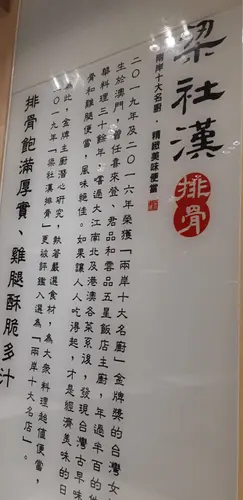 梁社漢
排骨
兩岸十大名廚．精緻美味便當
二〇一九年及二〇一六年榮獲「兩岸十大名廚」金牌獎的台灣女
生於澳門，曾任喜來登、君品和雲品五星飯店主廚，年過半百的他
華料理三十餘年，嚐過大江南北及港澳各菜系後，發現台灣古早味
骨和雞腿便當，風味絕佳。如果讓人人吃得起，才是經濟美味的日
為此，金牌主廚潛心研究，執著嚴選食材，為大眾料理超值便當，
二〇一九年「梁社漢排骨」更被評鑑入選為「兩岸十大名店」。
排骨飽滿厚實、雞腿酥脆多汁